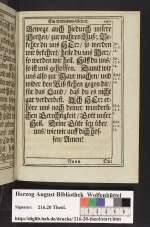 Bewege auch hiedurch unsere
Hertzen zur wahren Buß; Be-
kehre du uns HErr, so werden
wir bekehret; heile du uns Herr,
so werden wir heil. Hilff du uns,
so ist uns geholffen. Damit wir
uns also zur Buß machen, und
wider den Riß stehen gegen dir,
für das Land, daß du es nicht
gar verderbest. Ach HErr er-
höre uns nach deiner wunderli-
chen Gerechtigkeit, Gott unser
Heil. Deine Güte sey über
uns, wie wir auf dich hof-
fen, Amen!
Herzog August Bibliothek Wolfenbüttel
Signatur: 216.20 Theol.
http://diglib.hab.de/drucke/216-20-theol/start.htm